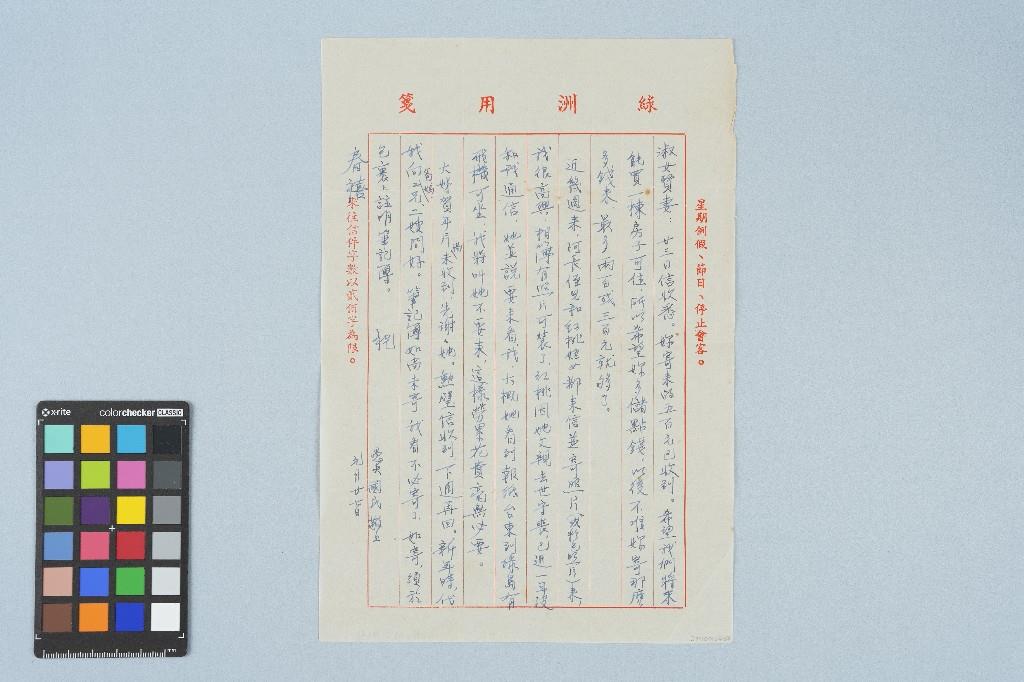 綠洲用箋
星期例假、節日、停止會客。
淑女賢妻：廿三日信收悉。妳寄來的五百元已收到。希望我們將來
能買一棟房子可住，所以希望妳多儲點錢，以後不准妳寄那麼
多錢來，最多兩百或三百元就够了。
近幾週來，阿長侄兒和紅桃 都來信並寄照片 照片來，
我很高興，相簿有照片可裝了。紅桃因她父親去世守喪，已近一年沒
和我通信，她並說要來看我，大概她看到報紙台東到綠島有
飛機可坐，我將叫她不要來，這樣勞累花費高無必要。
大嫂賀年片尚未收到，先謝謝她。 信收到，下週再回。新年時代
我向 兄、二嫂問好。筆記簿如尚未寄，我看不必寄了，如寄，須於
包裹上註明筆記簿。 祝
春禧
愚夫 國民
元月廿 日
來往信件字數以貳佰字為限。
xrite
colorchecker CLASSIC
mm